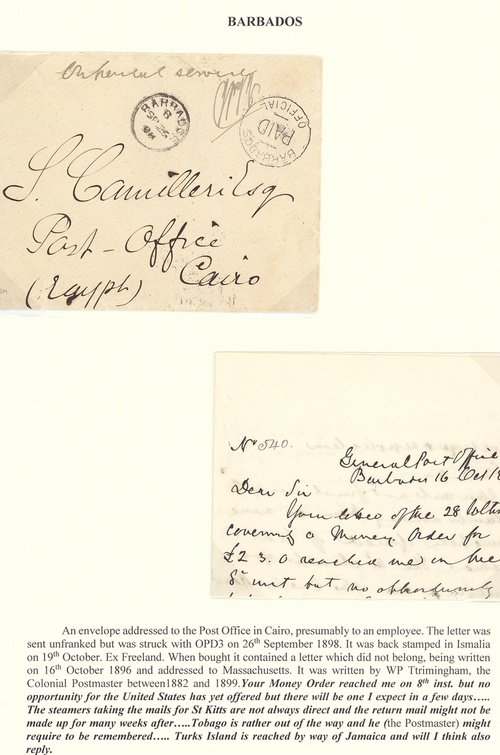 BARBADOS
On Postal service
BARBADOS
8
SP 26
98
BARBADOS
PAID
OFFICIAL
S. Camilleri Esq
Post-Office
Cairo
(Egypt)
No 540.
General Post Office
Barbados 16 Oct
Dear Sir
Your letter of the 28
covering a Money Order for
£2 3. 0 reached me on the
8th inst but no opportunity
An envelope addressed to the Post Office in Cairo, presumably to an employee. The letter was
sent unfranked but was struck with OPD3 on 26th September 1898. It was back stamped in Ismalia
on 19th October. Ex Freeland. When bought it contained a letter which did not belong, being written
on 16th October 1896 and addressed to Massachusetts. It was written by WP Ttrimingham, the
Colonial Postmaster between1882 and 1899.Your Money Order reached me on 8th inst. but no
opportunity for the United States has yet offered but there will be one I expect in a few days…..
The steamers taking the mails for St Kitts are not always direct and the return mail might not be
made up for many weeks after…..Tobago is rather out of the way and he (the Postmaster) might
require to be remembered….. Turks Island is reached by way of Jamaica and will I think also
reply.